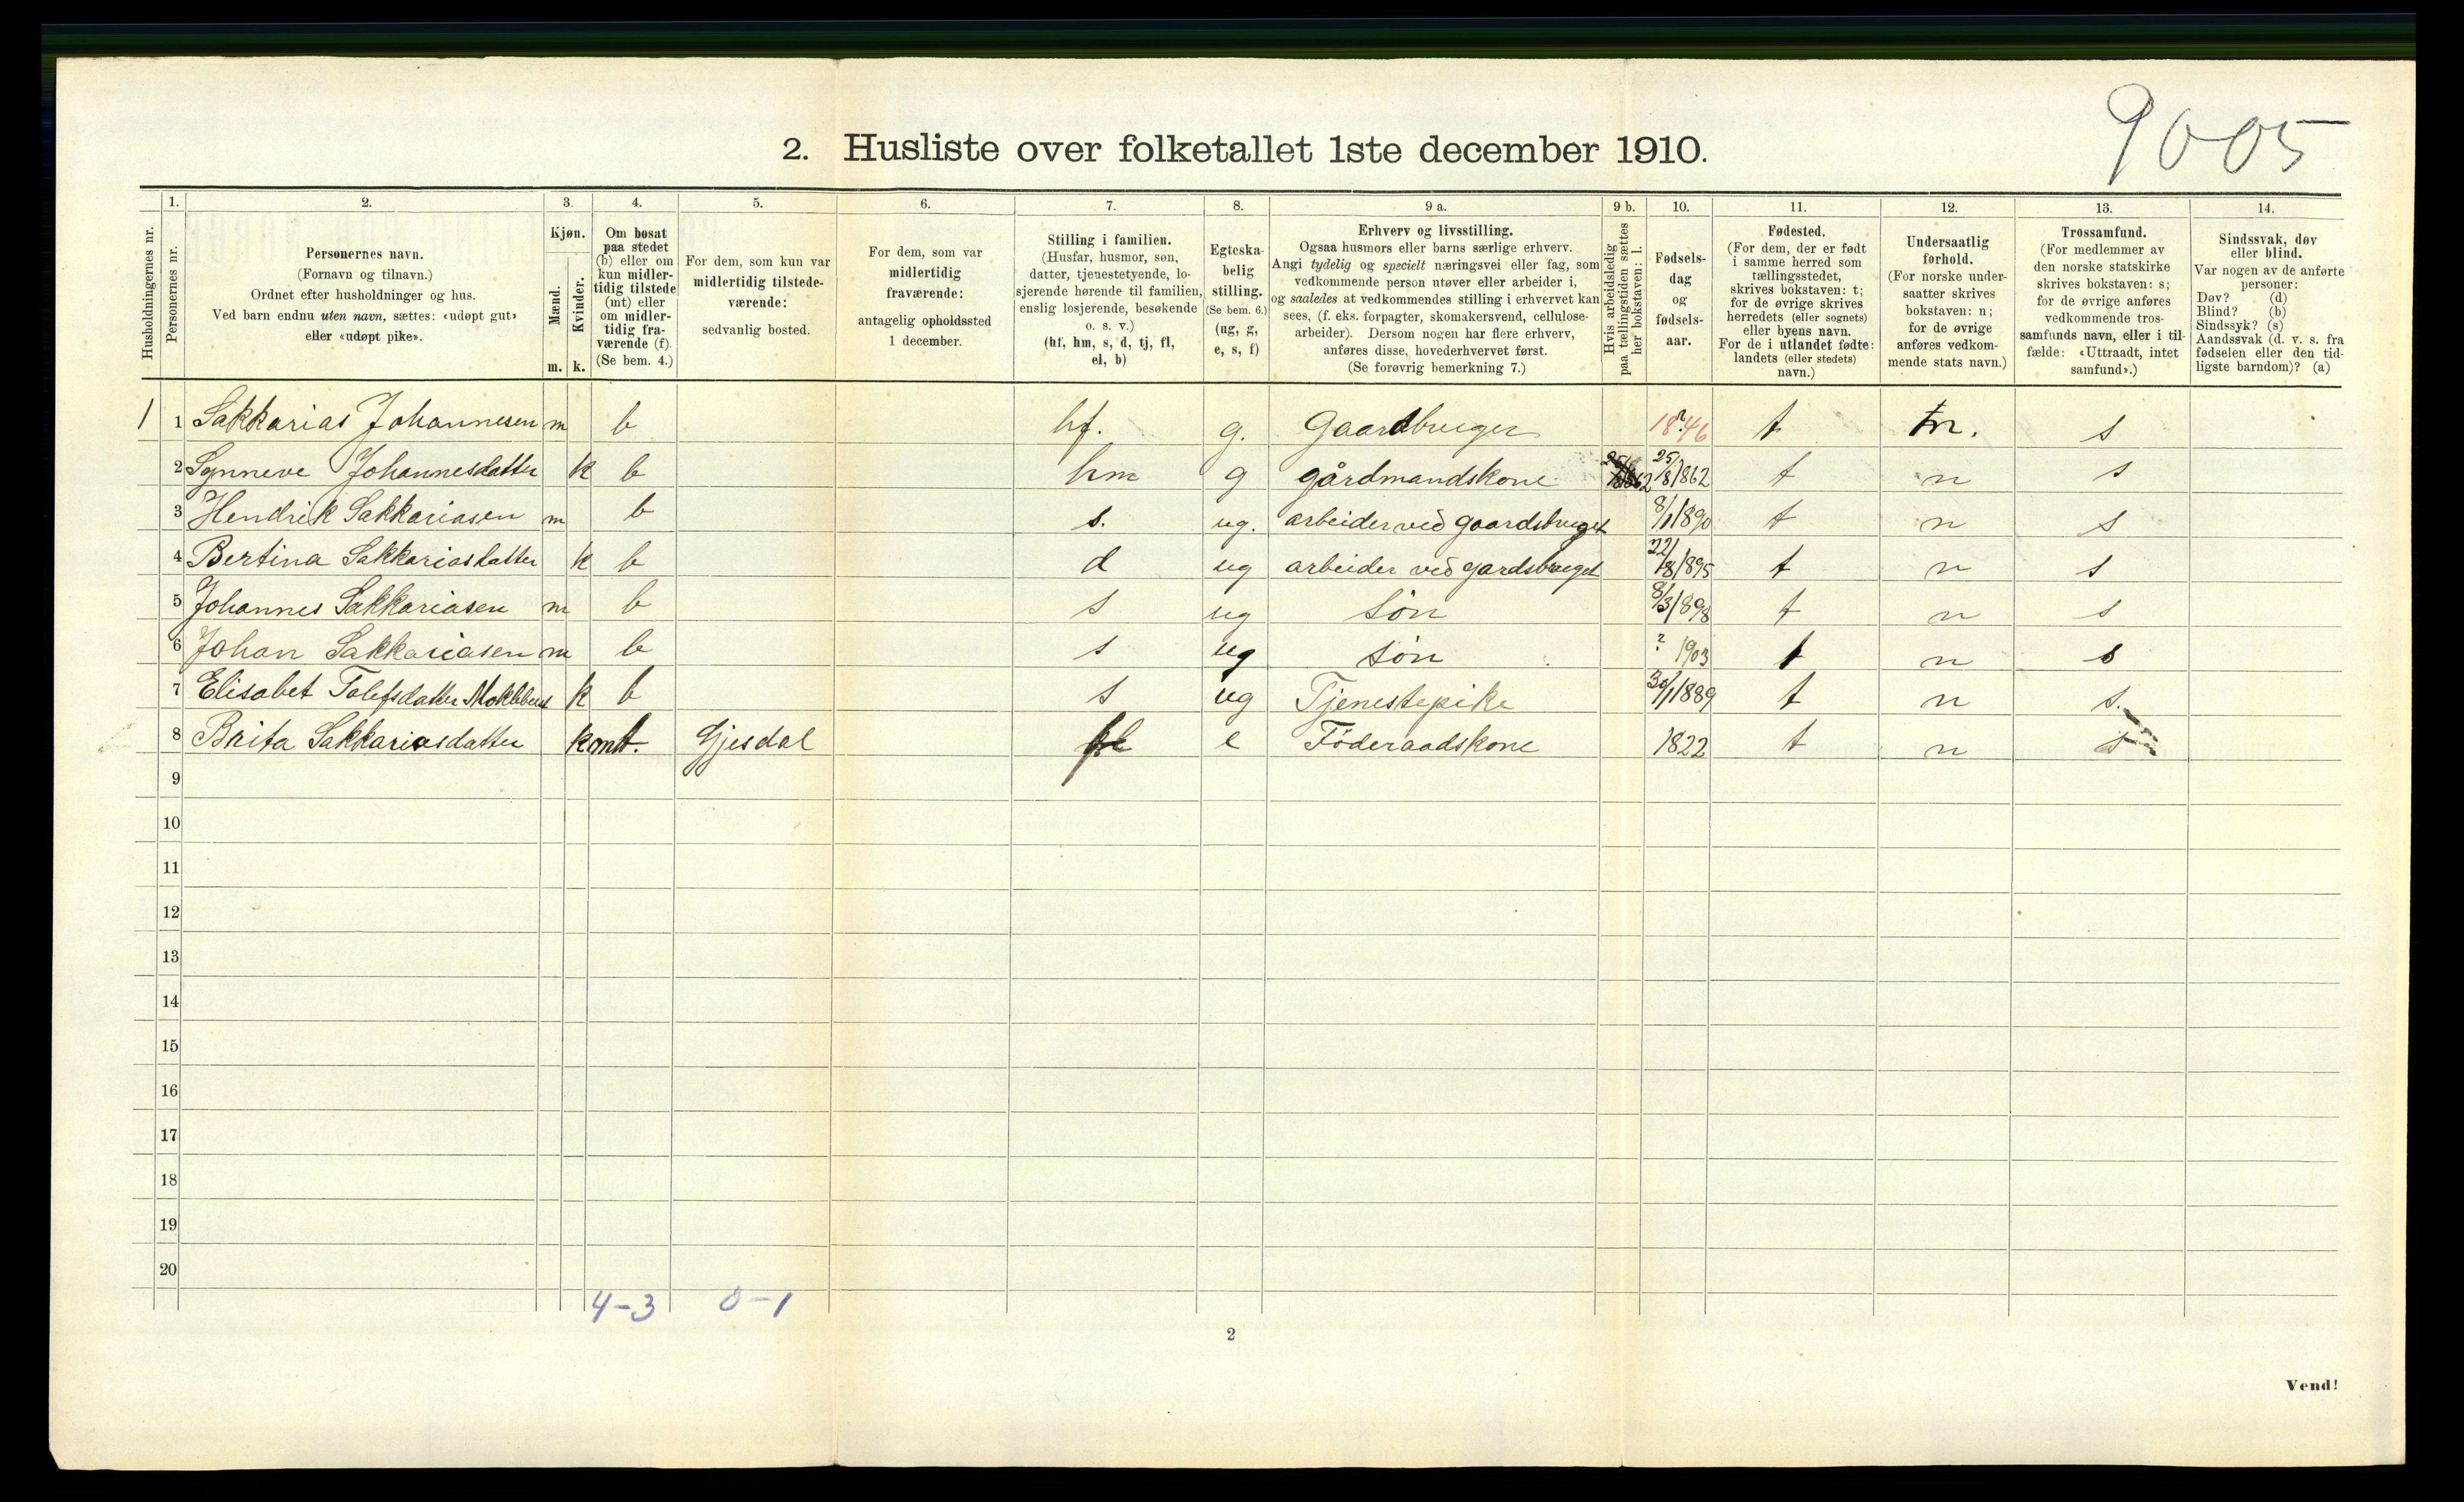 9005
2. Husliste over folketallet 1ste december 1910.
Husholdningernes nr.
1.
Personernes nr.
2.
Personernes navn.
(Fornavn og tilnavn.)
Ordnet efter husholdninger og hus.
Ved barn endnu uten navn, sættes: «udøpt gut»
eller «udøpt pike».
3.
Kjøn.
Mænd.
Kvinder.
m. k.
4.
Om bosat
paa stedet
(b) eller om
kun midler-
tidig tilstede
(mt) eller
om midler-
tidig fra-
værende (f).
(Se bem. 4.)
5.
For dem, som kun var
midlertidig tilstede-
værende:
sedvanlig bosted.
6.
For dem, som var
midlertidig
fraværende:
antagelig opholdssted
1 december.
7.
Stilling i familien.
(Husfar, husmor, søn,
datter, tjenestetyende, lo-
sjerende hørende til familien,
enslig losjerende, besøkende
o. s. v.)
(hf, hm, s, d, tj, fl,
el, b)
8.
Egteska-
belig
stilling.
(Se bem. 6.)
(ug, g,
e, s, f)
9 a.
Erhverv og livsstilling.
Ogsaa husmors eller barns særlige erhverv.
Angi tydelig og specielt næringsvei eller fag, som
vedkommende person utøver eller arbeider i,
og saaledes at vedkommendes stilling i erhvervet kan
sees, (f. eks. forpagter, skomakersvend, cellulose-
arbeider). Dersom nogen har flere erhverv,
anføres disse, hovederhvervet først.
(Se forøvrig bemerkning 7.)
9 b.
Hvis arbeidsledig
paa tællingstiden sættes
her bokstaven: l.
10.
Fødsels-
dag
og
fødsels-
aar.
11.
Fødested.
(For dem, der er født
i samme herred som
tællingsstedet,
skrives bokstaven: t;
for de øvrige skrives
herredets (eller sognets)
eller byens navn.
For de i utlandet fødte:
landets (eller stedets)
navn.)
12.
Undersaatlig
forhold.
(For norske under-
saatter skrives
bokstaven: n;
for de øvrige
anføres vedkom-
mende stats navn.)
13.
Trossamfund.
(For medlemmer av
den norske statskirke
skrives bokstaven: s;
for de øvrige anføres
vedkommende tros-
samfunds navn, eller i til-
fælde: «Uttraadt, intet
samfund».)
14.
Sindssvak, døv
eller blind.
Var nogen av de anførte
personer:
Døv? (d)
Blind? (b)
Sindssyk? (s)
Aandssvak (d. v. s. fra
fødselen eller den tid-
ligste barndom)? (a)
1 1 Sakkarias Johannesen m b hf. g. Gaardbruger ? 1846 t n. s
2 Synneve Johannesdatter k b hm g gårdmandskone 25/8 1862 t n s
3 Hendrik Sakkariasen m b s. ug. arbeider ved gaardsbruget 8/1 1890 t n s
4 Bertina Sakkariasdatter k b d ug arbeider ved gardsbruget 22/8 1895 t n s
5 Johannes Sakkariasen m b s ug søn 8/3 1898 t n s
6 Johan Sakkariasen m b s ug søn ? 1903 t n s
7 Elisabet Tolefsdatter k b s ug Tjenestepike 30/1 1889 t n s.
8 Brita Sakkariasdatter k mt. Gjesdal e Föderaadskone 1822 t n s
9
10
11
12
13
14
15
16
17
18
19
20
4-3 0-1
2
Vend!